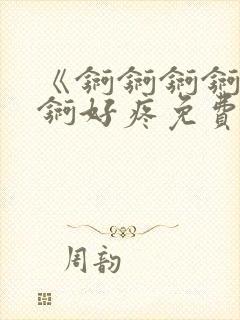 《锕锕锕锕
锕好疼免費
周韵